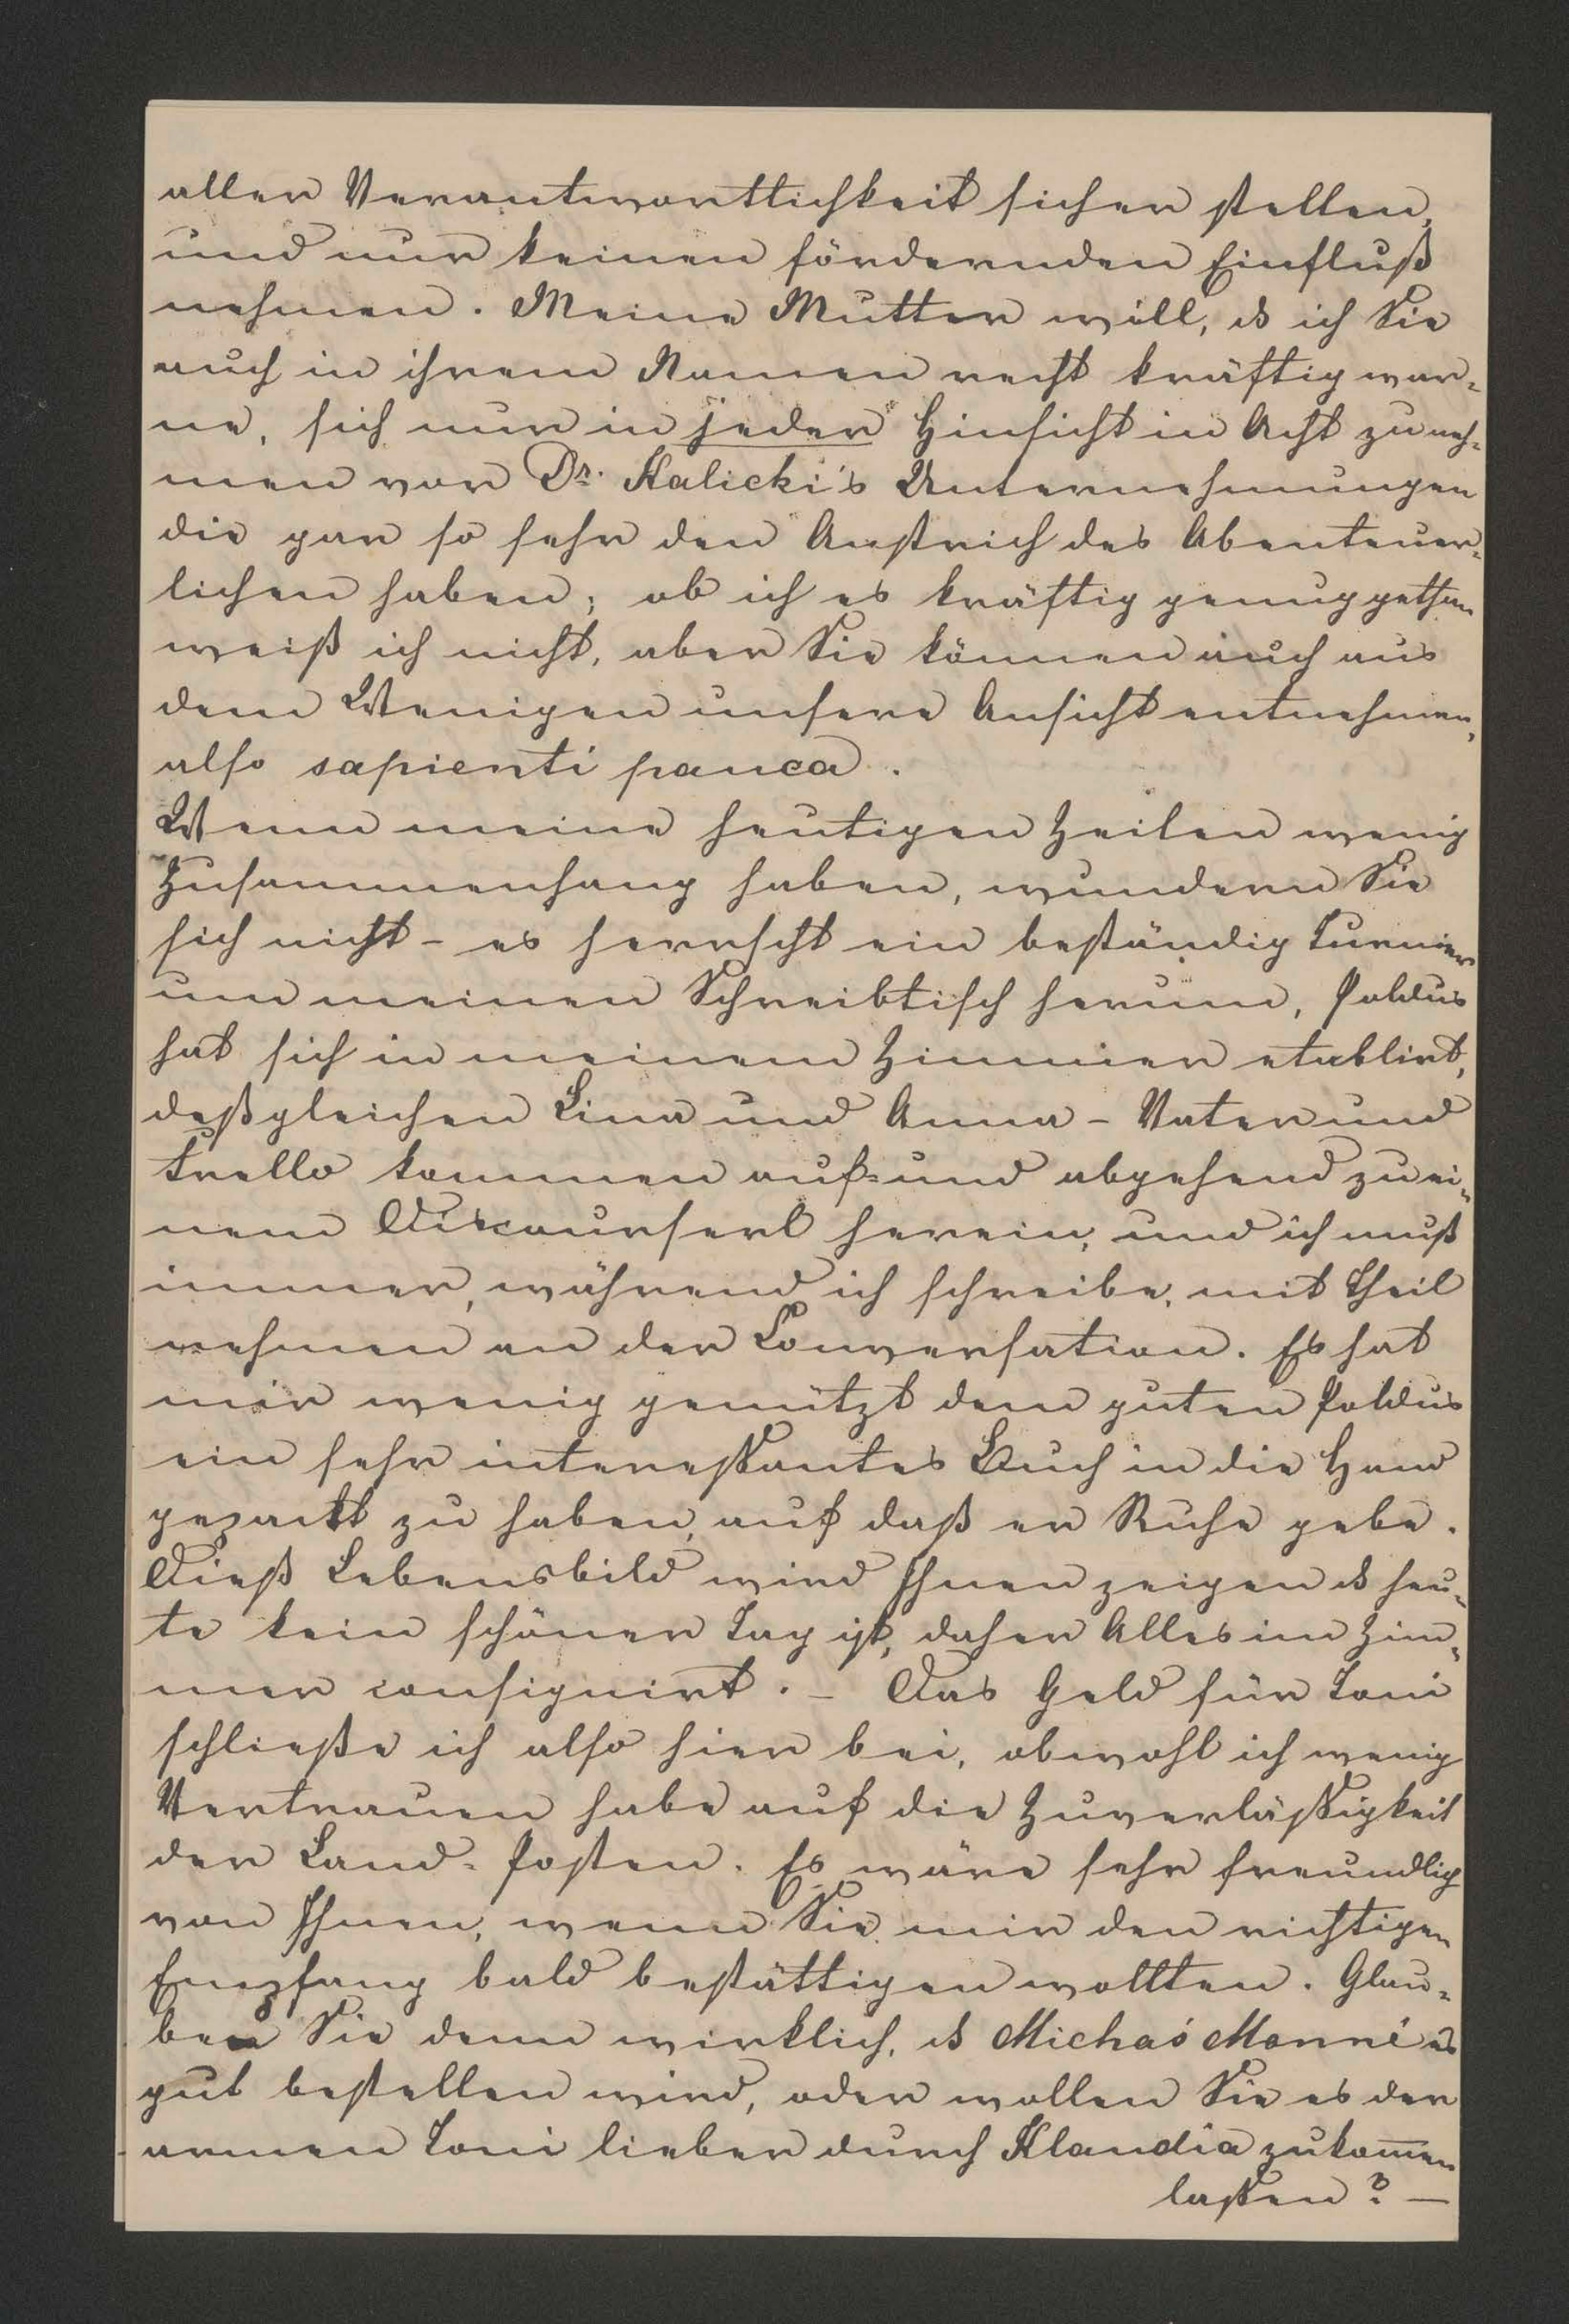 aller Verantwortlichkeit sicher stellen,
und nur keinen fördernden Einfluß
nehmen. Meine Mutter will, ds ich Sie
auch in ihrem Namen recht kräftig war=
ne, sich nur in jeder Hinsicht in Acht zu neh=
men vor Dr. Kalicki's Unternehmungen
die gar so sehr den Anstrich des Abenteuer=
lichen haben; ob ich es kräftig genug gethan
weiß ich nicht, aber Sie können auch aus
dem Wenigen unsere Ansicht entnehmen,
also sapienti pauca.
Wenn meine heutigen Zeilen wenig
Zusammenhang haben, wundern Sie
sich nicht - es herrscht ein beständig Turnier
um meinen Schreibtisch herum, Poldus
hat sich in meinem Zimmer etablirt,
deßgleichen Lina und Anna - Vater und
Trello kommen auf= und abgehend zu ei=
nem Discourserl herein, und ich muß
immer, während ich schreibe, mit Theil
nehmen an der Conversation. Es hat
mir wenig genützt dem guten Poldus
ein sehr interessantes Buch in die Hand
gepackt zu haben, auf daß er Ruhe gebe.
Dieß Lebensbild wird Ihnen zeigen ds heu=
te kein schöner Tag ist, daher Alles im Zim=
mer consignirt. - Das Geld für Toni
schließe ich also hier bei, obwohl ich wenig
Vertrauen habe auf die Zuverläßigkeit
der Land=Posten. Es wäre sehr freundlich
von Ihnen, wenn Sie mir den richtigen
Empfang bald bestättigen wollten. Glau=
ben Sie denn wirklich, ds Michaś Monné es
gut bestellen wird, oder wollen Sie es der
armen Toni lieber durch Klaudia zukom̅en
lassen? —